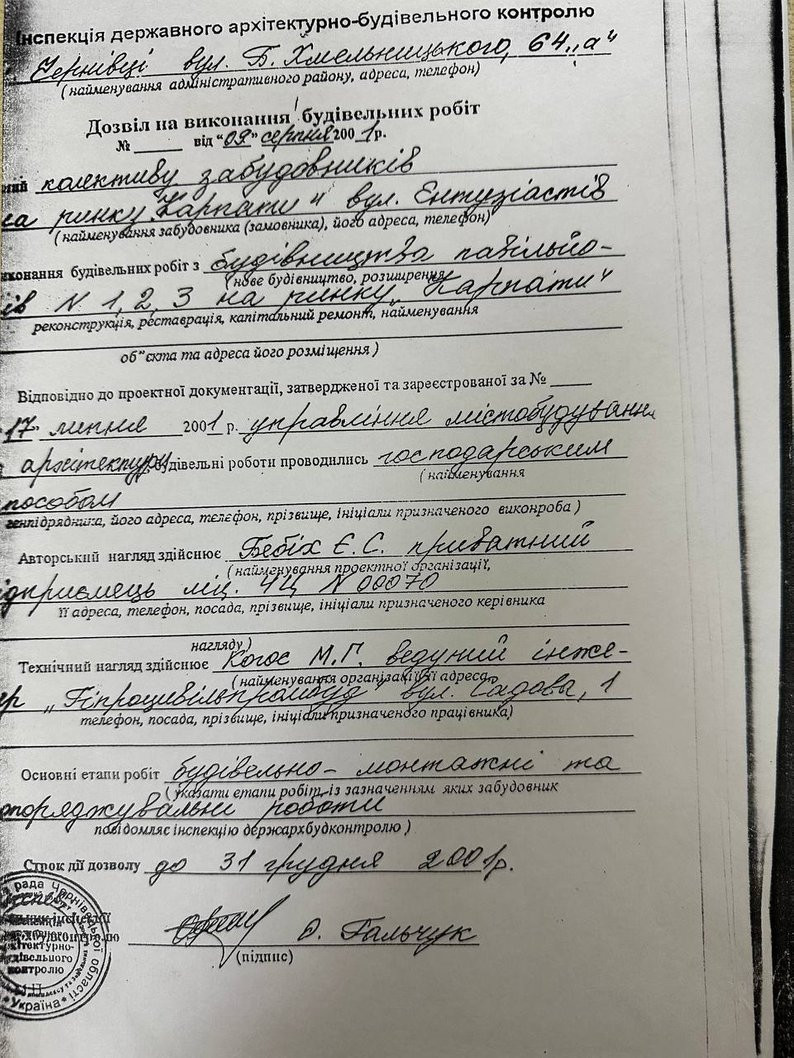 Інспекція державного архітектурно-будівельного контролю
Чернівці вул. Б. Хмельницького, 64 „а"
( найменування адміністративного району, адреса, телефон)
Дозвіл на виконання будівельних робіт
№ ______ від "09" серпня 2001 р.
колективу забудовників
на ринку „Карпати" вул. Ентузіастів
( найменування забудовника (замовника), його адреса, телефон)
виконання будівельних робіт з будівництва павільйо-
(нове будівництво, розширення,
ів N 1, 2, 3 на ринку „Карпати"
реконструкція, реставрація, капітальний ремонт, найменування
об"єкта та адреса його розміщення )
Відповідно до проектної документації, затвердженої та зареєстрованої за № _____
"17" липня 2001 р. управління містобудування
архітектури будівельні роботи проводились господарським
( найменування
способом
генпідрядника, його адреса, телефон, прізвище, ініціали призначеного виконроба )
Авторський нагляд здійснює Бебіх Є. С. приватний
( найменування проектної організації,
ідприємець ліц. ЧЦ N 00070
її адреса, телефон, посада, прізвище, ініціали призначеного керівника
нагляду )
Технічний нагляд здійснює Когос М.Г. ведучий інже-
(найменування організації, її адреса,
ер „Гіпроцивільпромбуд" вул. Садова, 1
телефон, посада, прізвище, ініціали призначеного працівника)
Основні етапи робіт будівельно - монтажні та
( указати етапи робіт, із зазначенням яких забудовник
опоряджувальні роботи
повідомляє інспекцію держархбудконтролю )
Строк дії дозволу до 31 грудня 2001р.
О. Гальчук
(підпис)
рада Чернівецької області
архітектурно-
будівельного
контролю
Україна